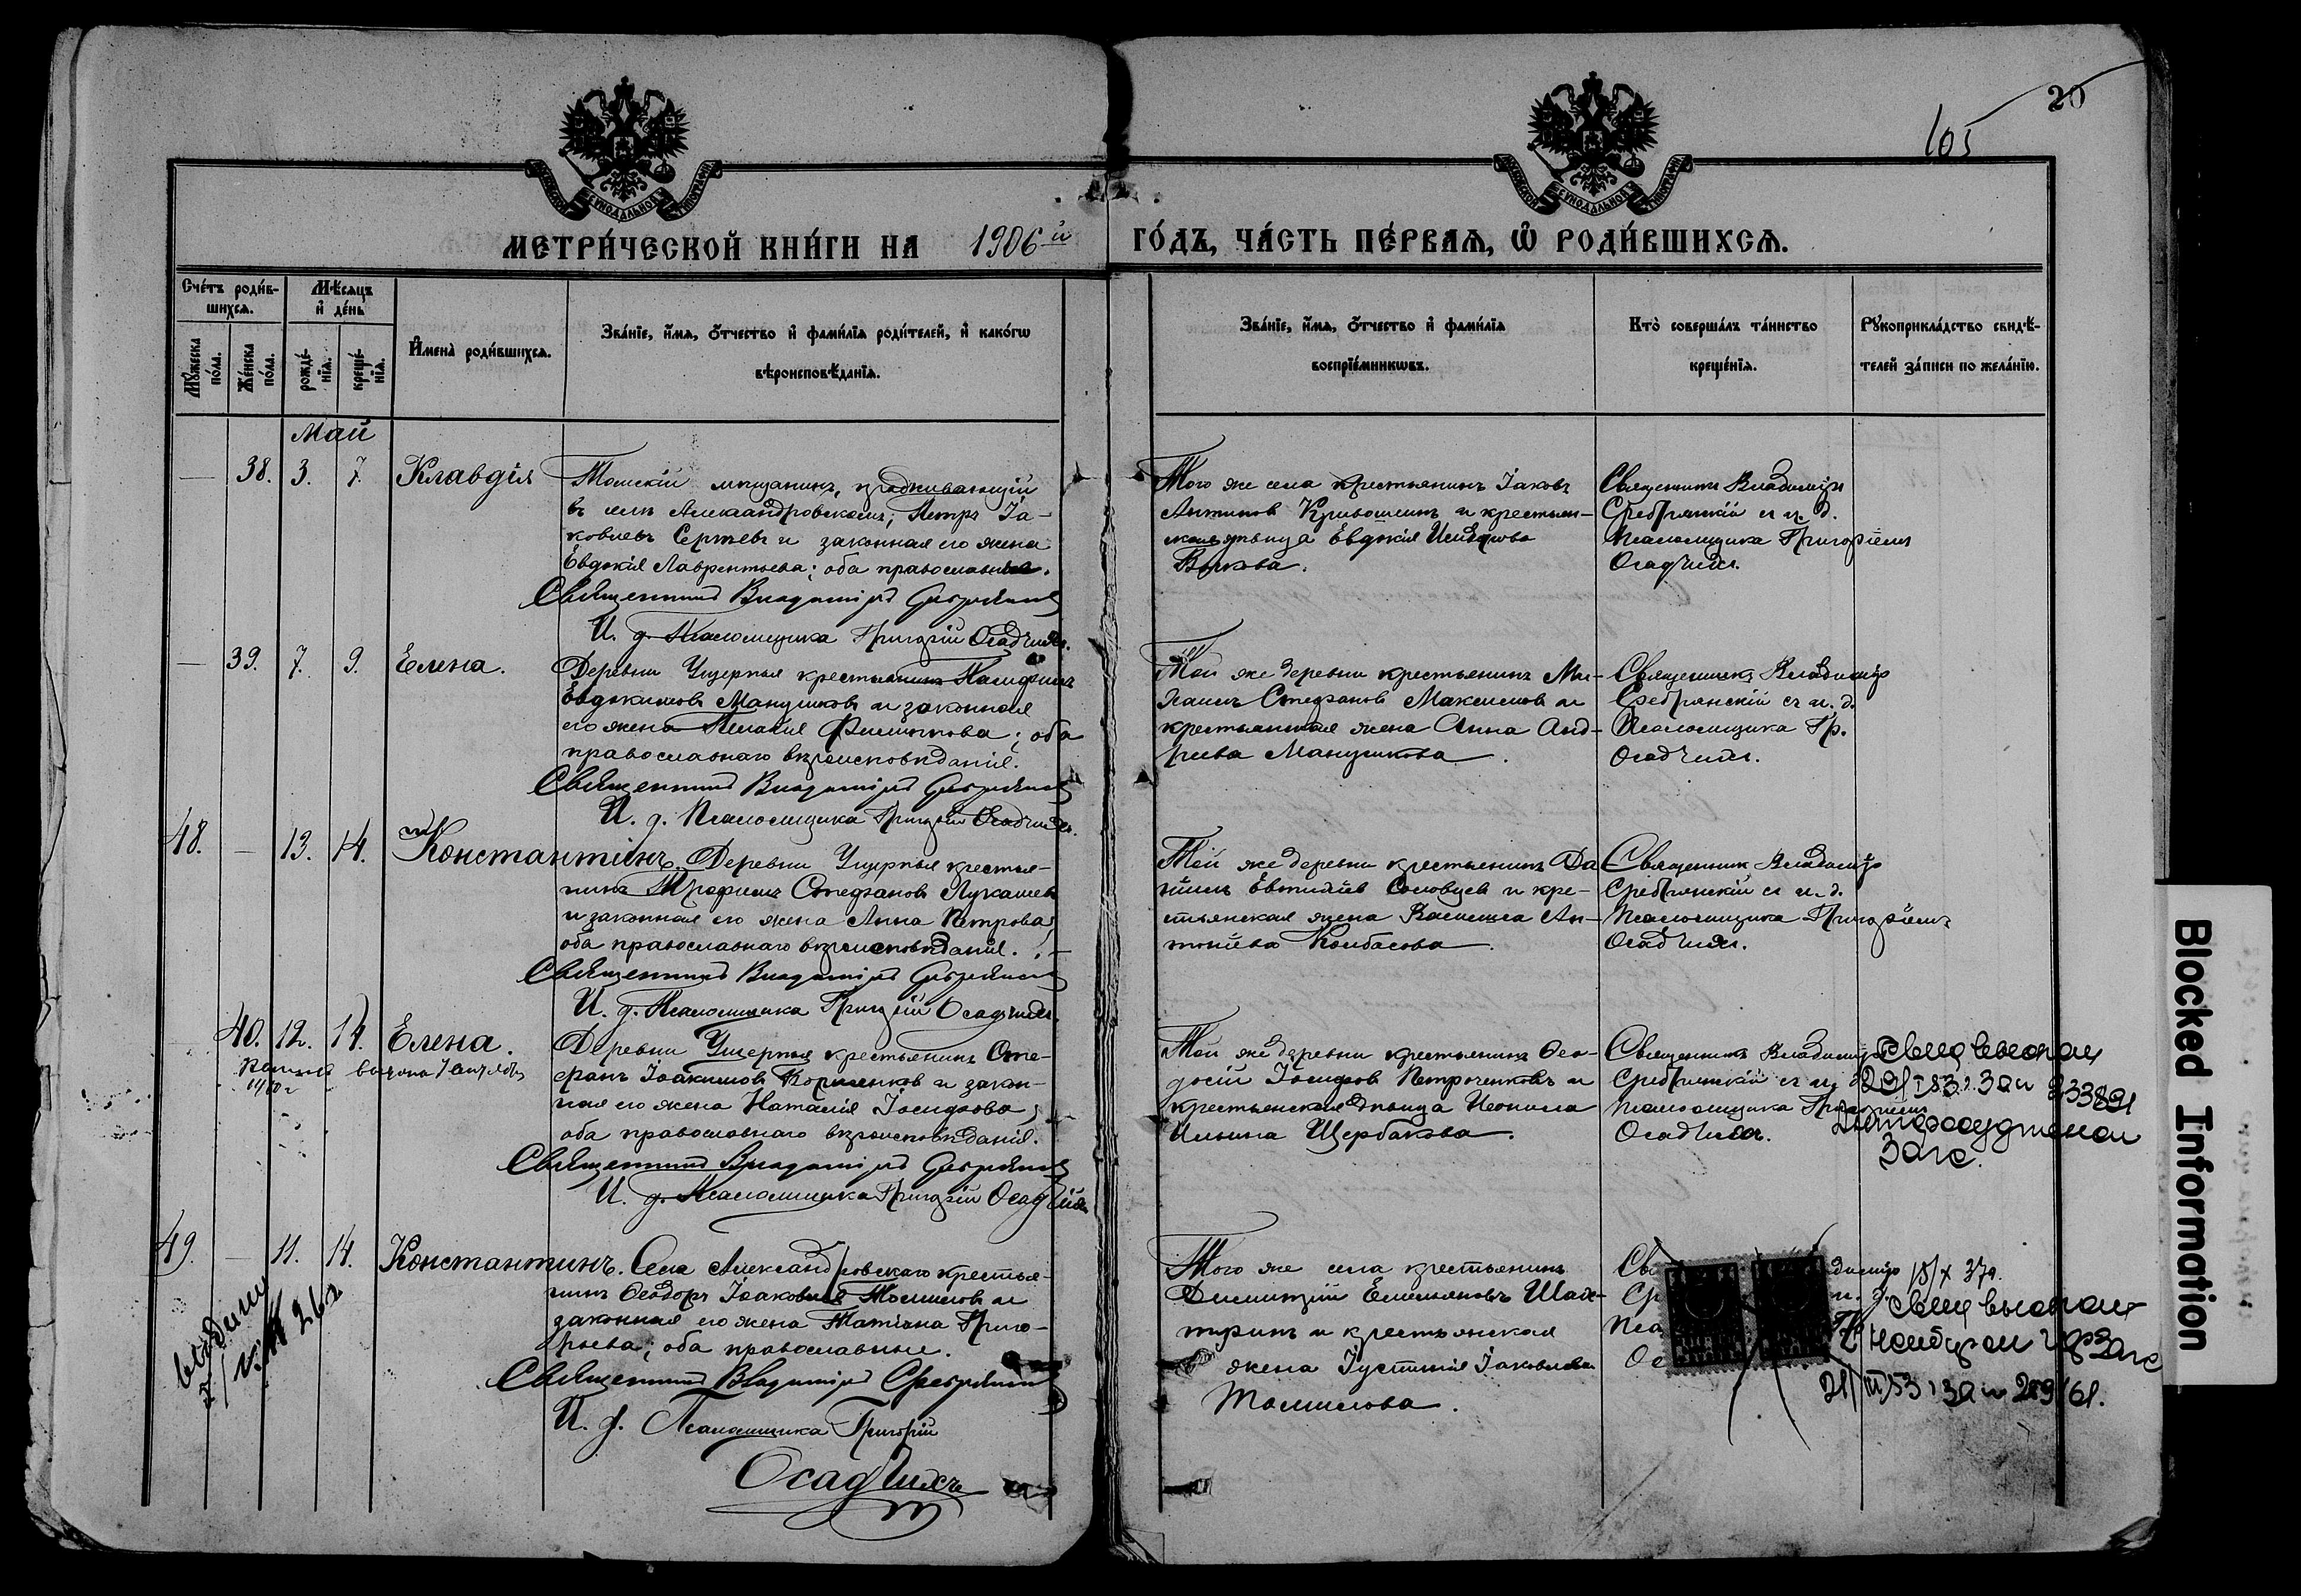 20
105
МЕТРИ́ЧЕСКОЙ КНИ́ГИ НА 1906й ГО́ДЪ, ЧА́СТЬ ПЕ́РВАЯ, Ѿ РОДИ́ВШИХСЯ.
Сче́тъ роди́в-
шихся.
Мѣ́сяцъ
и҆ де́нь
Мꙋ́жеска
по́ла.
Же́нска
по́ла.
рожде́-
нїѧ.
креще́-
нїѧ.
И҆мена̀ роди́вшихсѧ.
Зва́нїе, и҆́мѧ, ѻ҆́тчество и҆ фами́лїѧ роди́телей, и҆ како́гѡ
вѣроисповѣ́данїѧ.
Зва́нїе, и҆́мѧ, ѻ҆́тчество и҆ фами́лїѧ
воспрїе́мникѡвъ.
Кто̀ соверша́лъ та́инство
креще́нїѧ.
Рꙋкоприкла́дство свидѣ́-
телей за́писи по жела́нїю.
Май
— 38. 3. 7. Клавдія
Томскій мѣщанинъ, проживающій
въ селѣ Александровскомъ, Петръ Іа-
ковлевъ Сергѣевъ и законная его жена
Евдокія Лаврентьева; оба православные.
Священникъ Владиміръ Сребрянскій
И. д. Псаломщика Григорій Осадчихъ.
Того же села крестьянинъ Іаковъ
Антиповъ Кривошеинъ и крестьян-
ская дѣвица Евдокія
Волкова.
Священникъ Владиміръ
Сребрянскій съ и. д.
Псаломщика Григоріемъ
Осадчихъ.
— 39. 7. 9. Елена.
Деревни крестьянинъ
Евдокимовъ Манушковъ и законная
его жена Пелагія Филиппова; оба
православнаго вѣроисповѣданія.
Священникъ Владиміръ Сребрянскій
И. д. Псаломщика Григорій Осадчихъ.
Той же деревни крестьянинъ Ми-
хаилъ Стефановъ Максимовъ и
крестьянская жена Анна Анд-
реева Манушкова.
Священникъ Владиміръ
Сребрянскій съ и. д.
Псаломщика Гр.
Осадчихъ.
48. — 13. 14. Константинъ.
Деревни крестья-
нинъ Трофимъ Стефановъ Лукашевъ
и законная его жена Анна Петрова;
оба православнаго вѣроисповѣданія.
Священникъ Владиміръ Сребрянскій
И. д. Псаломщика Григорій Осадчихъ.
Той же деревни крестьянинъ Да-
ніилъ Соловцевъ и кре-
стьянская жена Василиса Ан-
тоніева Колбасова.
Священникъ Владиміръ
Сребрянскій съ и. д.
Псаломщика Григоріемъ
Осадчихъ.
40. 12. 14. Елена.
Деревни крестьянинъ Сте-
фанъ Іоакимовъ и закон-
ная его жена Наталія Іосифова;
оба православнаго вѣроисповѣданія.
Священникъ Владиміръ Сребрянскій
И. д. Псаломщика Григорій Осадчихъ.
Той же деревни крестьянинъ Ѳео-
досій Іосифовъ Петроченковъ и
крестьянская дѣвица Неонила
Ильина Щербакова.
Священникъ Владиміръ
Сребрянскій съ и. д.
Псаломщика Григоріемъ
Осадчихъ.
Загс.
49. — 11. 14. Константинъ.
Села Александровскаго крестья-
нинъ Ѳеодоръ Іоаковлевъ Томиловъ и
законная его жена Татіана Григо-
рьева; оба православные.
Священникъ Владиміръ Сребрянскій
И. д. Псаломщика Григорій
Осадчихъ
Того же села крестьянинъ
Димитрій Емельяновъ Шах-
тринъ и крестьянская
жена Іустинія Іаковлева
Томилова.
Blocked Information